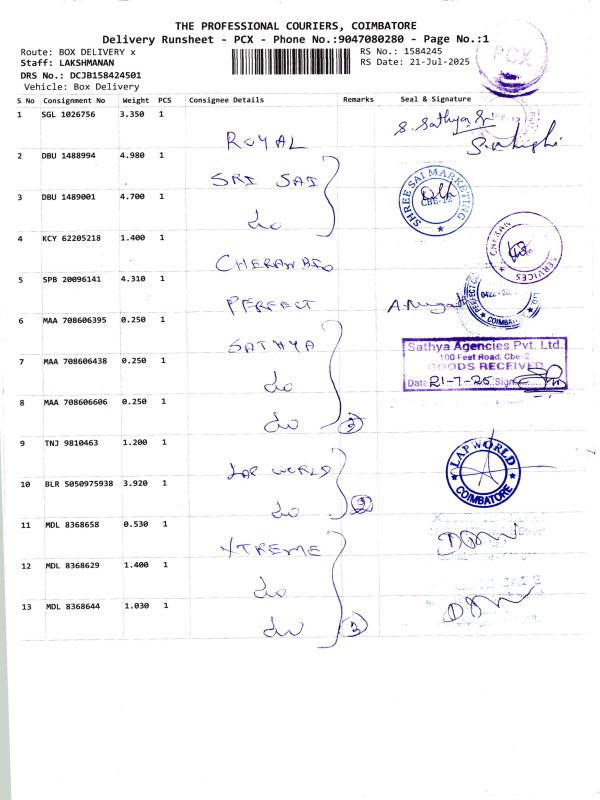 THE PROFESSIONAL COURIERS, COIMBATORE
Delivery Runsheet - PCX - Phone No.:9047080280 - Page No.:1
Route: BOX DELIVERY x
RS No.: 1584245
Staff: LAKSHMANAN
RS Date: 21-Jul-2025
DRS No.: DCJB158424501
Vehicle: Box Delivery
PCX
S No Consignment No Weight PCS Consignee Details Remarks Seal & Signature
1 SGL 1026756 3.350 1 ROYAL
S. Sathya
2 DBU 1488994 4.980 1 SRI SAI
SHREE SAI MARKETING
CBE-12
3 DBU 1489001 4.700 1 do
4 KCY 62205218 1.400 1 CHERAN
CHERAN SERVICES
5 SPB 20096141 4.310 1 PERFECT
PERFECT
COIMB
6 MAA 708606395 0.250 1 SATHYA
Sathya Agencies Pvt. Ltd.
100 Feet Road, Cbe-2.
GOODS RECEIVED
Date 21-7-25 Sign
7 MAA 708606438 0.250 1 do
8 MAA 708606606 0.250 1 do 3
9 TNJ 9810463 1.200 1 LAP WORLD
LAP WORLD
COIMBATORE
10 BLR 5050975938 3.920 1 do 2
11 MDL 8368658 0.530 1 XTREME
12 MDL 8368629 1.400 1 do
13 MDL 8368644 1.030 1 do 3